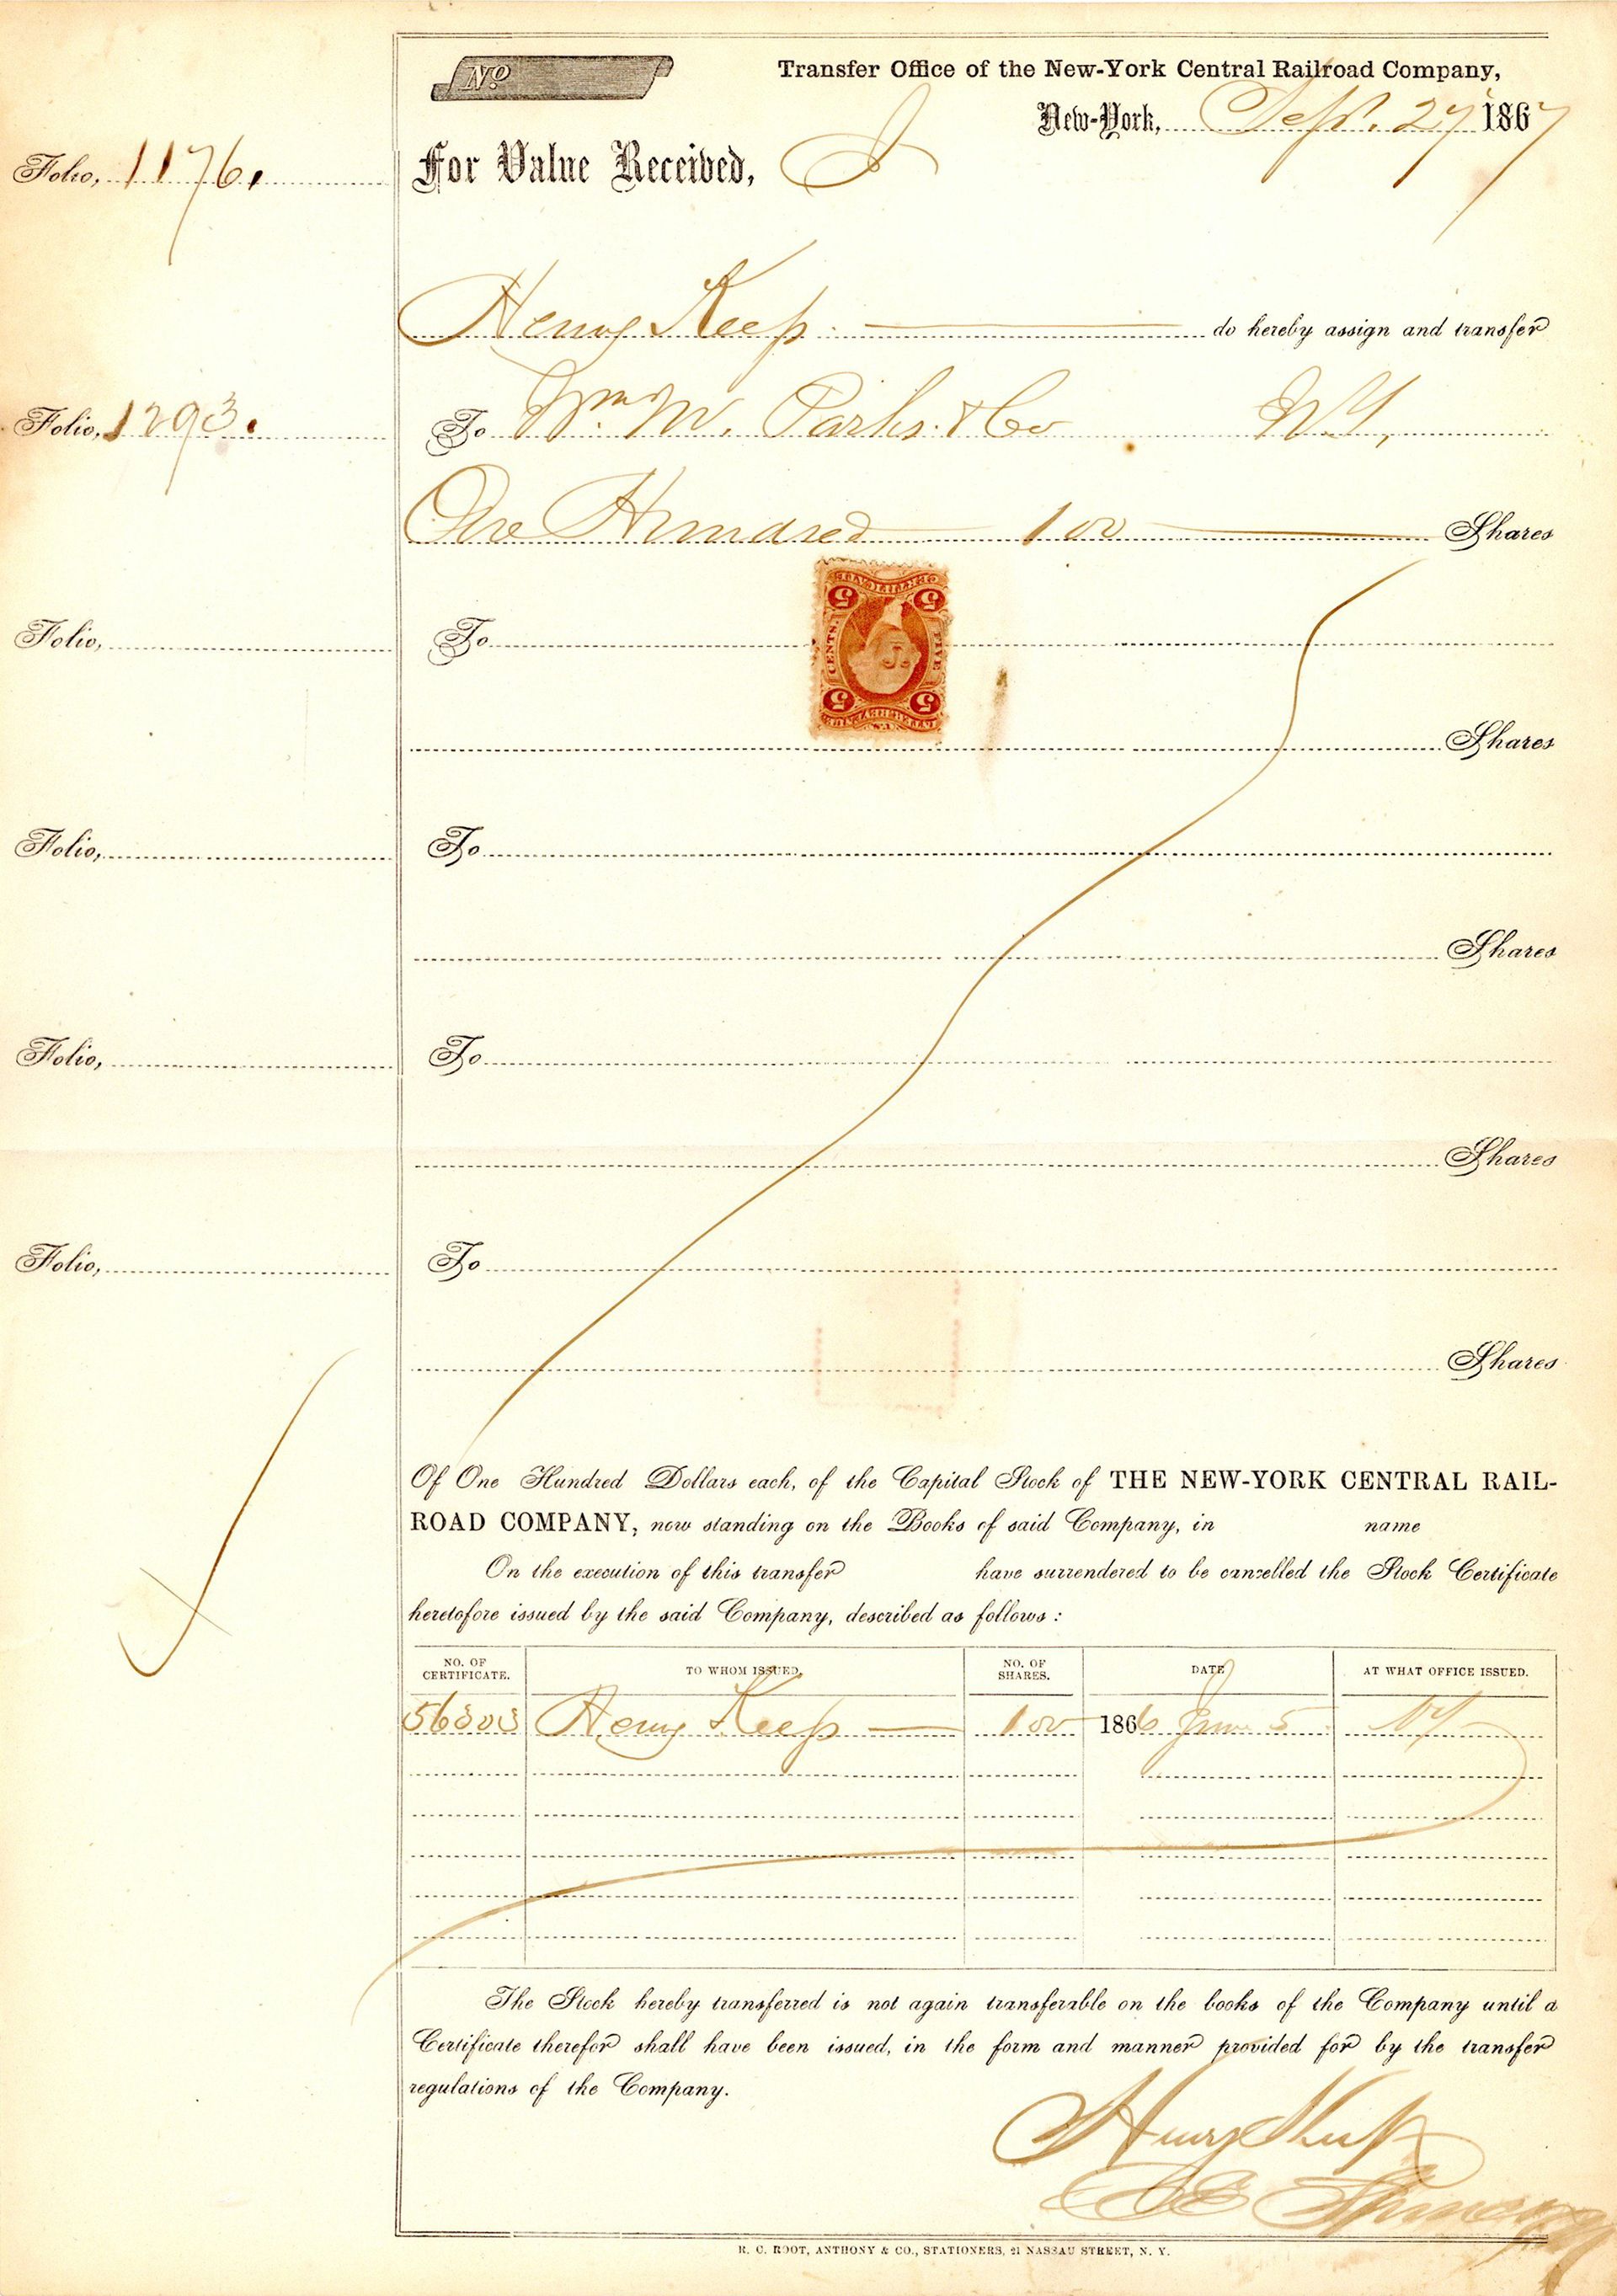 No
Transfer Office of the New-York Central Railroad Company,
New-York, Sept. 27 1867
Folio, 1176.
For Value Received, I
Henry Keep. do hereby assign and transfer
Folio, 1293.
To Wm. W. Parks. & Co N.Y,
One Hundred 100 Shares
Folio,
To
5 5
CENTS. FIVE
5 5
Shares
Folio,
To
Shares
Folio,
To
Shares
Folio,
To
Shares
Of One Hundred Dollars each, of the Capital Stock of THE NEW-YORK CENTRAL RAIL-
ROAD COMPANY, now standing on the Books of said Company, in name
On the execution of this transfer have surrendered to be cancelled the Stock Certificate
heretofore issued by the said Company, described as follows:
NO. OF CERTIFICATE. TO WHOM ISSUED. NO. OF SHARES. DATE AT WHAT OFFICE ISSUED.
Henry Keep 100 1866 June 5 NY
The Stock hereby transferred is not again transferable on the books of the Company until a
Certificate therefor shall have been issued, in the form and manner provided for by the transfer
regulations of the Company.
Henry Keep
R. C. ROOT, ANTHONY & CO., STATIONERS, 21 NASSAU STREET, N. Y.